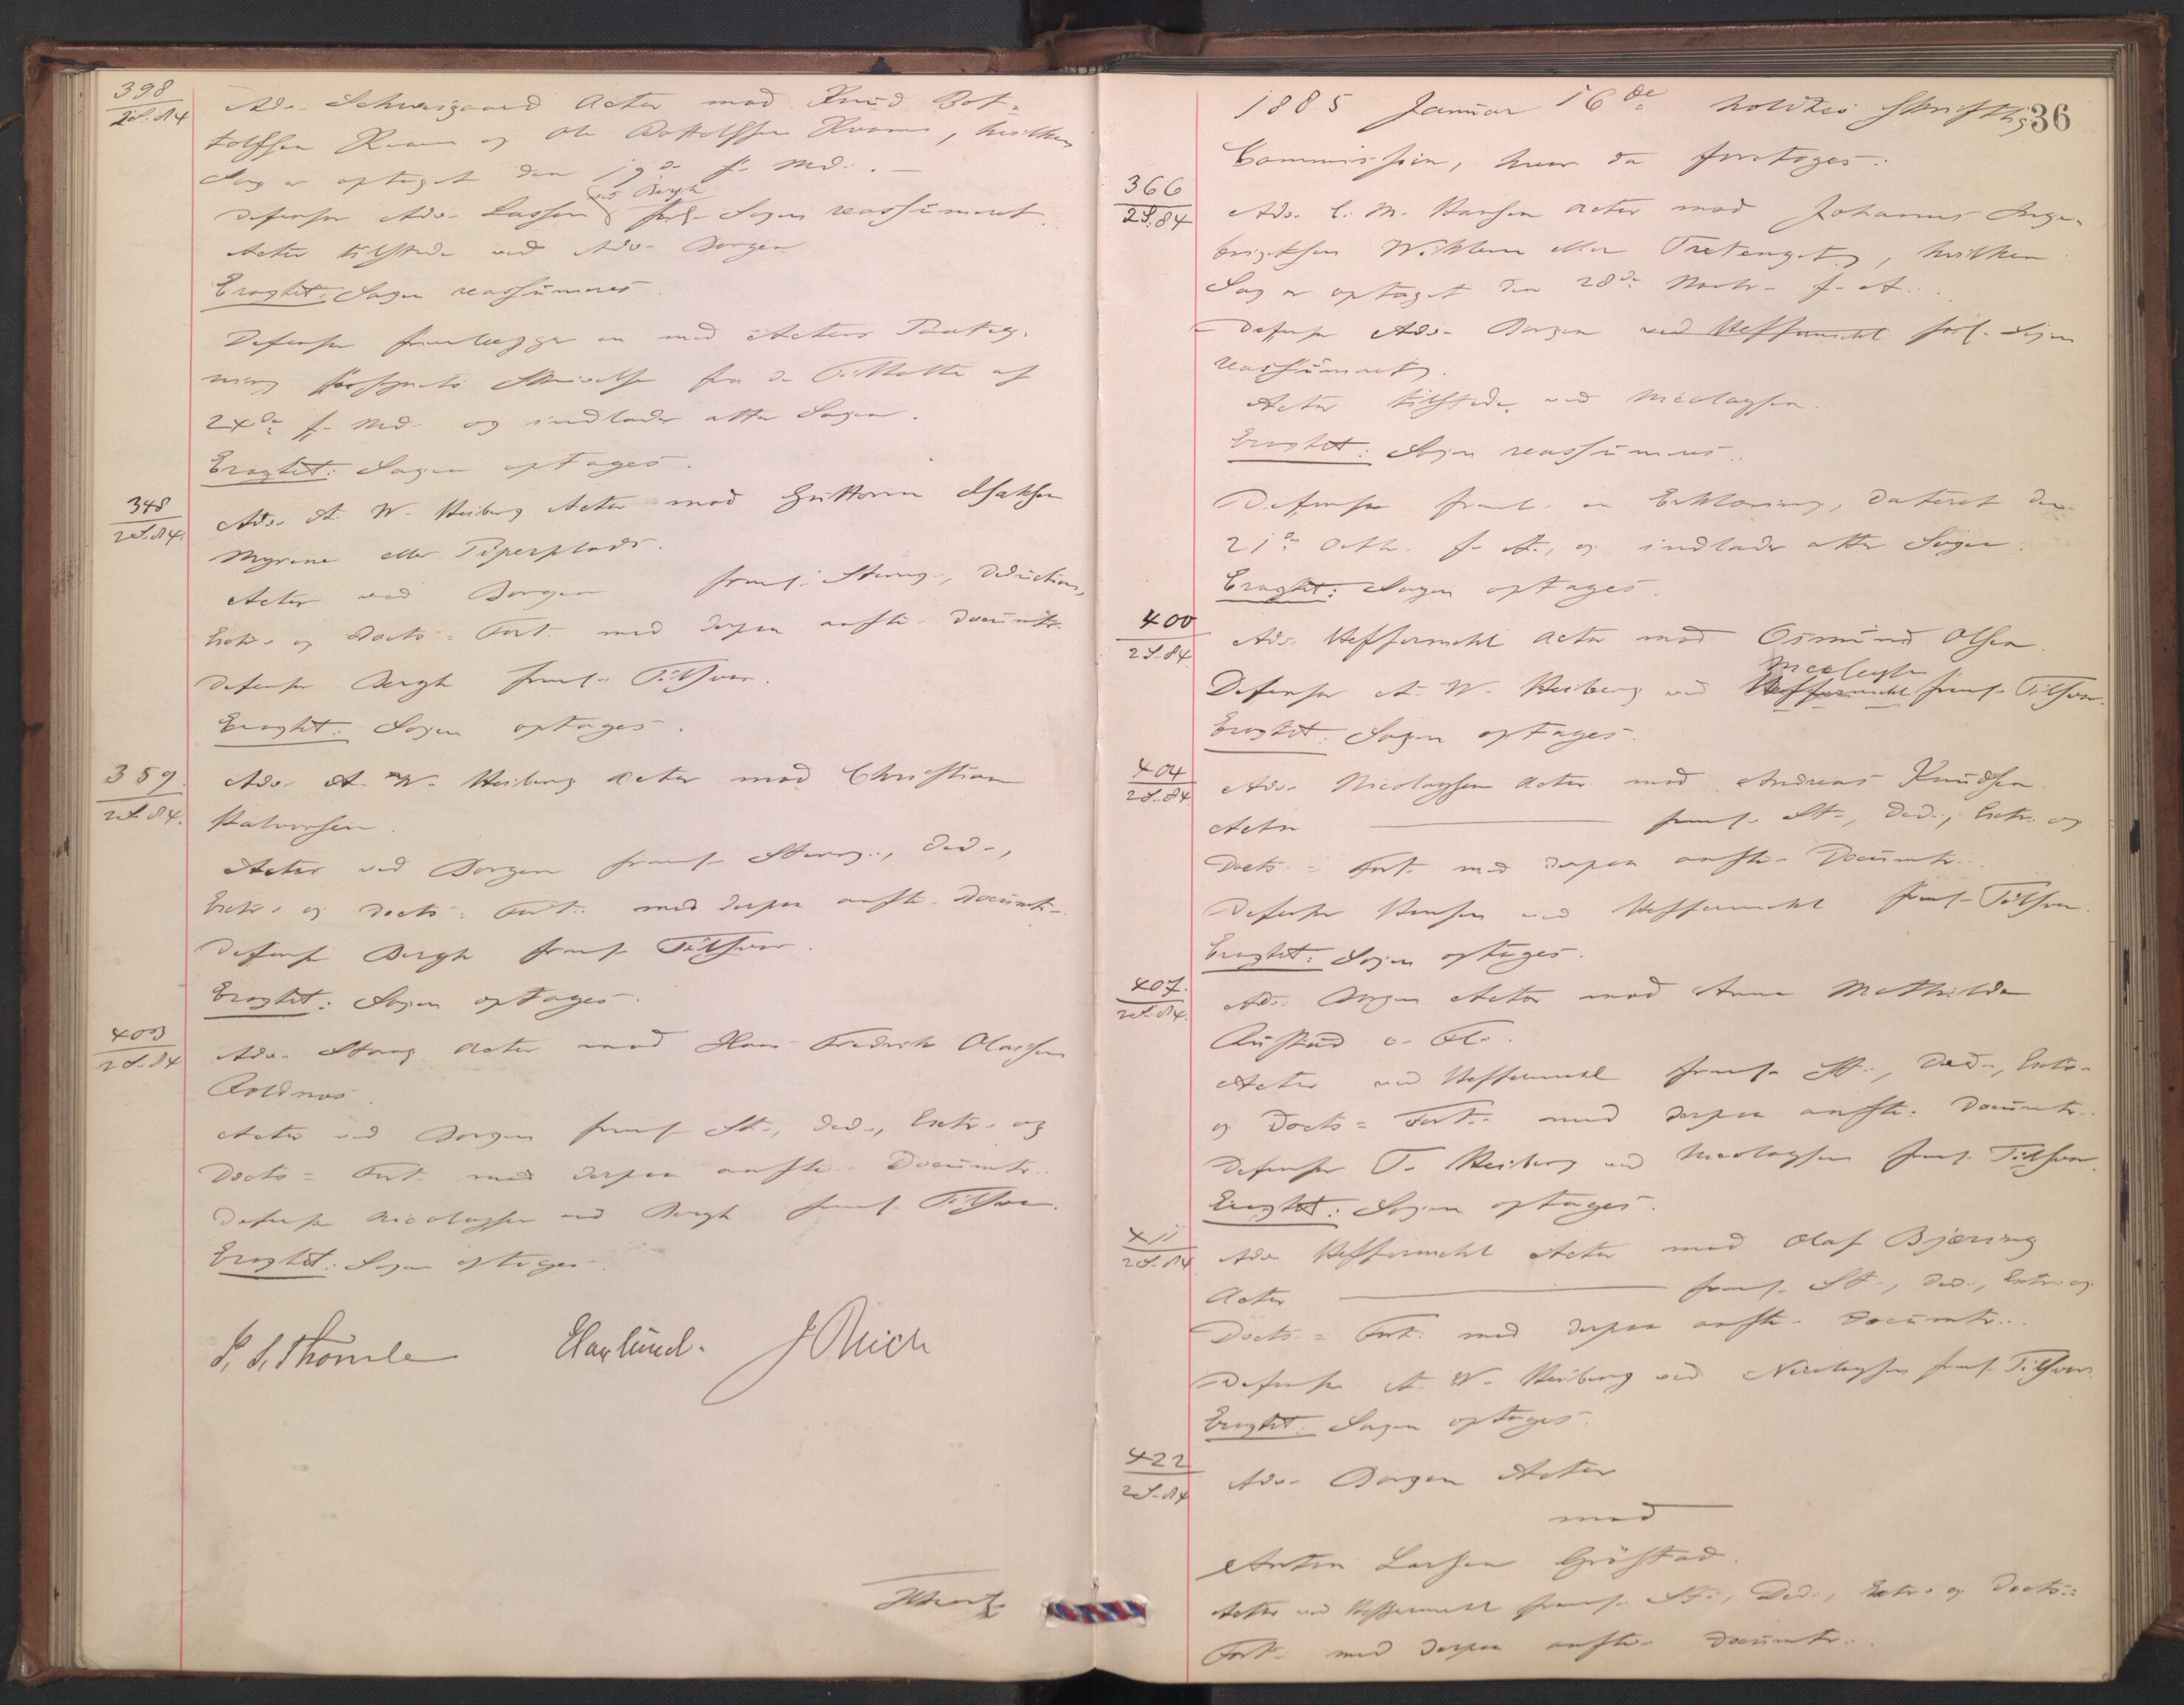 398
2S. 84
Adv. Schweigaard Actor mod Knud Bot-
tolfsen Kvam og Ole Bottolfsen Kvam, hvilken
Sag er optaget den 19de f. Md. –
ved Bergh
Defensor Adv. Lassen forl. Sagen reassumeret.
Actor tilstede ved Adv. Borgen
Eragtet: Sagen reassumeres.
Defensor fremlægger en med Actors Paateg-
ning Skrivelse fra de Tiltalte af
24de f. Md. og indlader atter Sagen.
Eragtet: Sagen optages.
348
2S. 84.
Adv. A. W. Heiberg Actor mod Guttorm Isaksen
Myrene eller Piperplads.
Actor ved Borgen freml. Stevng., Deduction,
Extr. og Docts = Fort. med derpaa anfte. Documtr.
Defensor Bergh freml. Tilsvar.
Eragtet: Sagen optages.
359.
2S. 84.
Adv. A. W. Heiberg Actor mod Christian
Halvorsen.
Actor ved Borgen freml. Stevng., Ded.,
Extr. og Docts = Fort. med derpaa anfte. Documtr.
Defensor Bergh freml. Tilsvar.
Eragtet: Sagen optages.
403
2S. 84
Adv. Stang Actor mod Hans Fredrik Olaisen
Roldnæs.
Actor ved Borgen freml. St., Ded., Extr. og
Docts = Fort. med derpaa anfte. Documtr.
Defensor Nicolaysen ved Bergh freml. Tilsvar.
Eragtet: Sagen optages.
P. S. Thomle Haxlund. J Mich
36
1885 Januar 16de holdtes Skriftlig
Commission, hvor da foretoges:
366
2S. 84
Adv. C. M. Hansen Actor mod Johannes Inge-
brigtsen Wiklem eller Tretenget, hvilken
Sag er optaget den 28de Novbr. f. A.
Defensor Adv. Borgen ved Heffermehl forl. Sagen
reassumeret.
Actor tilstede ved Nicolaysen.
Eragtet: Sagen reassumeres.
Defensor freml. en Erklæring, dateret den
21de Octbr. f. A., og indlader atter Sagen.
Eragtet: Sagen optages.
400
2S. 84
Adv. Heffermehl Actor mod Osmund Olsen.
Nicolaysen
Defensor A. W. Heiberg ved Heffermehl freml. Tilsvar.
Eragtet: Sagen optages.
404
2S. 84.
Adv. Nicolaysen Actor mod Andreas Knudsen.
Actor ——— freml. St., Ded., Extr. og
Docts = Fort. med derpaa anfte. Documtr.
Defensor Hansen ved Heffermehl freml. Tilsvar.
Eragtet: Sagen optages.
407.
2S. 84.
Adv. Borgen Actor mod Anna Mathilde
Rustad o. Fl.
Actor ved Heffermehl freml. St., Ded., Extr.
og Docts = Fort. med derpaa anfte. Documtr.
Defensor T. Heiberg ved Nicolaysen freml. Tilsvar.
Eragtet: Sagen optages.
411
2S. 84
Adv. Heffermehl Actor mod Olaf Bjæring
Actor ——— freml. St., Ded., Extr. og
Docts = Fort. med derpaa anfte. Documtr.
Defensor A. W. Heiberg ved Nicolaysen freml. Tilsvar.
Eragtet: Sagen optages.
422
2S. 84
Adv. Borgen Actor
mod
Anton Larsen Gröstad.
Actor ved Heffermehl freml. St., Ded., Extr. og Docts =
Fort. med derpaa anfte. Documtr.